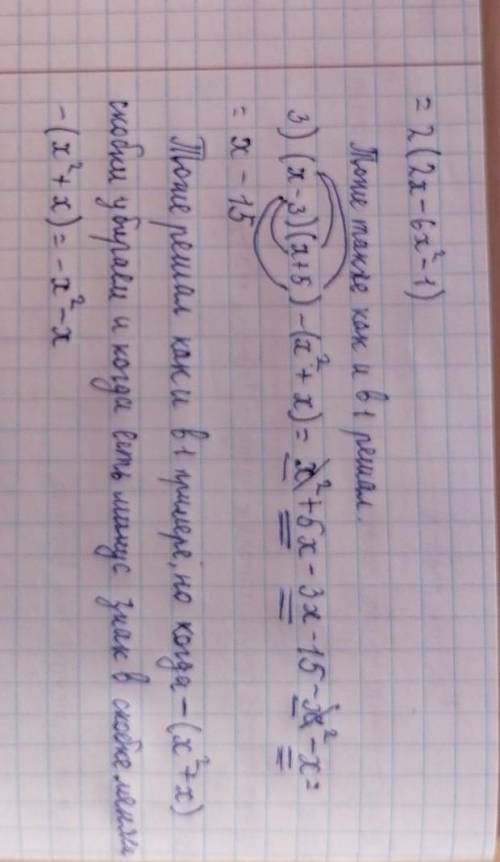 = 2(2x-6x²-1)
Тоже также как и в 1 решал.
3) (x-3)(x+5)-(x²+x)= x²+5x-3x-15-x²-x=
= x-15
Тоже решал как и в 1 примере, но когда -(x²+x)
скобки убираем и когда есть минус знак в скобке
-(x²+x)=-x²-x